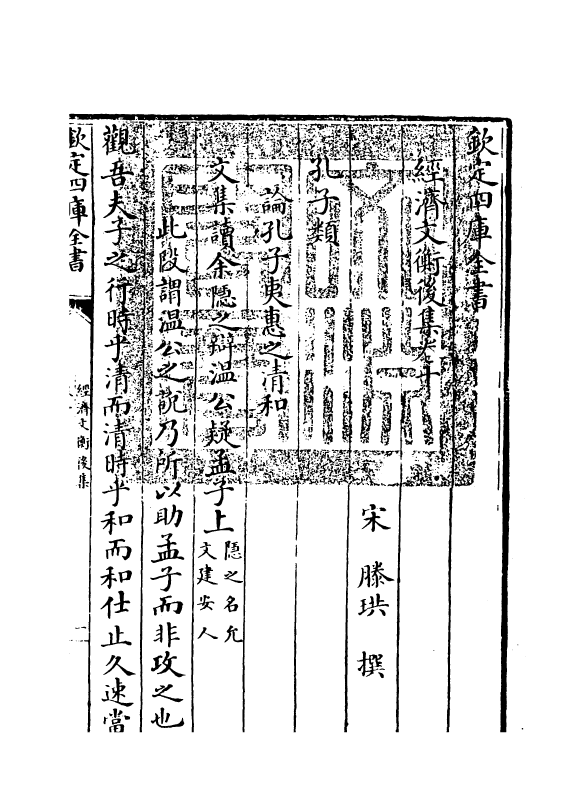 欽定四庫全書
經濟文衡後集卷十
宋 滕珙 撰
孔子類
論孔子夷惠之清和
文集讀余隱之辯溫公疑孟子上隱之名允文建安人
此段謂溫公之說乃所以助孟子而非攻之也
觀吾夫子之行時乎清而清時乎和而和仕止久速當
欽定四庫全書
經濟文衡後集